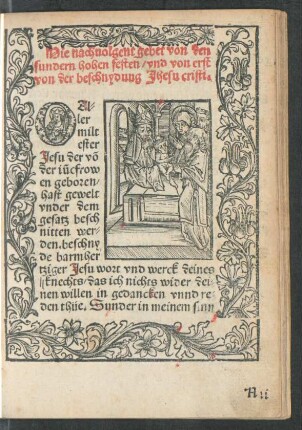 Hie nachuolgent gebet von den
sundern hohen festen / vnd von erst
von der beschnydung Jhesu cristi.
O Al
ler
milt
ester
Jesu der võ
der iũcfrow
en gebozen
hast gewelt
vnder dem
gesatz besch
nitten wer
den. beschny
de barmher
tziger Jesu wort vnd werck deines
knechts / das ich nichts wider dei
nen willen in gedancken vnnd re
den thüe. Sunder in meinem sinn
A ii